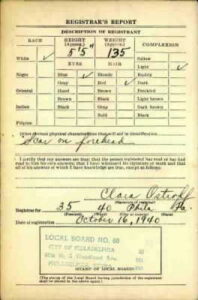 REGISTRAR'S REPORT
DESCRIPTION OF REGISTRANT
RACE HEIGHT (Approx.) WEIGHT (Approx.) COMPLEXION
5'5" 135
White ✓ Sallow
EYES HAIR Light ✓
Negro Blue ✓ Blonde Ruddy
Gray Red ✓ Dark
Oriental Hazel Brown Freckled
Brown Black Light brown
Indian Black Gray Dark brown
Bald Black
Filipino
Other obvious physical characteristics that will aid in identification
Scar on forehead
I certify that my answers are true; that the person registered has read or has had
read to him his own answers; that I have witnessed his signature or mark and that
all of his answers of which I have knowledge are true, except as follows:
Clara
Registrar for 35 40 Phila Pa.
Date of registration October 16, 1940
LOCAL BOARD NO. 60
CITY OF PHILADELPHIA
PHILADELPHIA
(STAMP OF LOCAL BOARD)
(The stamp of the Local Board having jurisdiction of the registrant
shall be placed in the above space.)